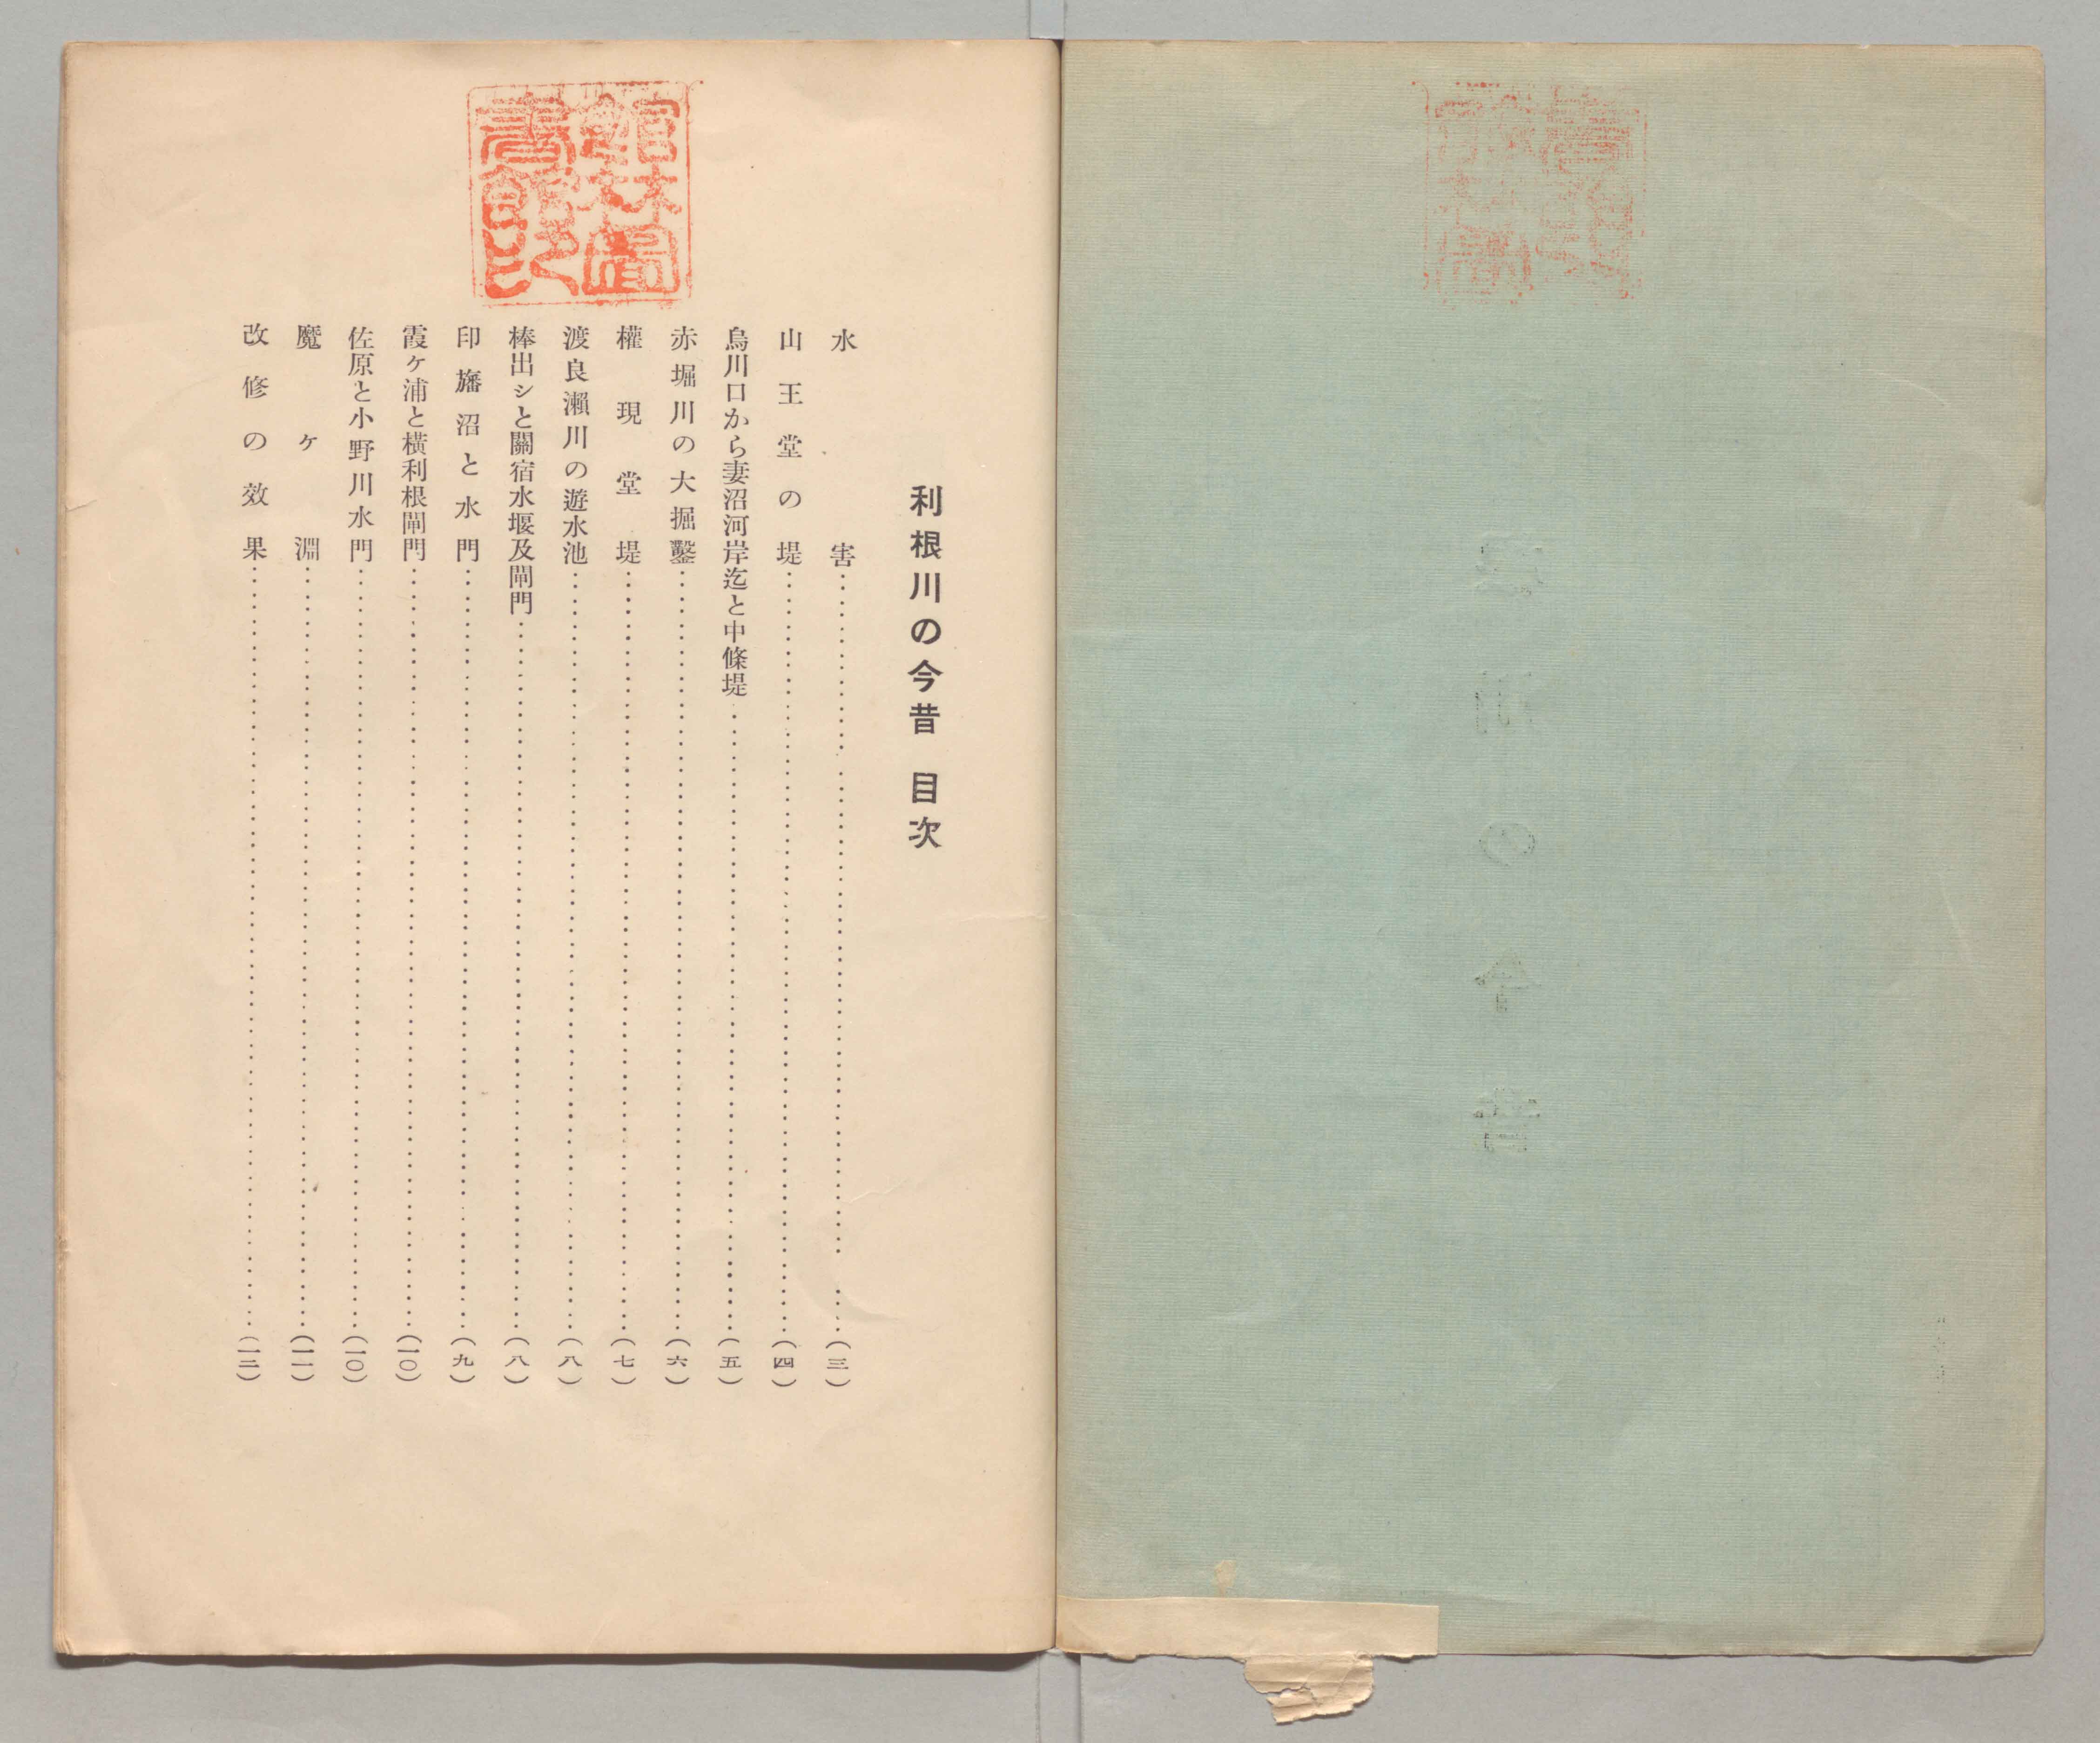 利根川の今昔 目次
水害……(三)
山王堂の堤……(四)
烏川口から妻沼河岸迄と中條堤……(五)
赤堀川の大掘鑿……(六)
權現堂堤……(七)
渡良瀬川の遊水池……(八)
棒出シと關宿水堰及閘門……(八)
印旛沼と水門……(九)
霞ケ浦と橫利根閘門……(一〇)
佐原と小野川水門……(一〇)
魔ヶ淵……(一一)
改修の效果……(一二)
館林圖書館印